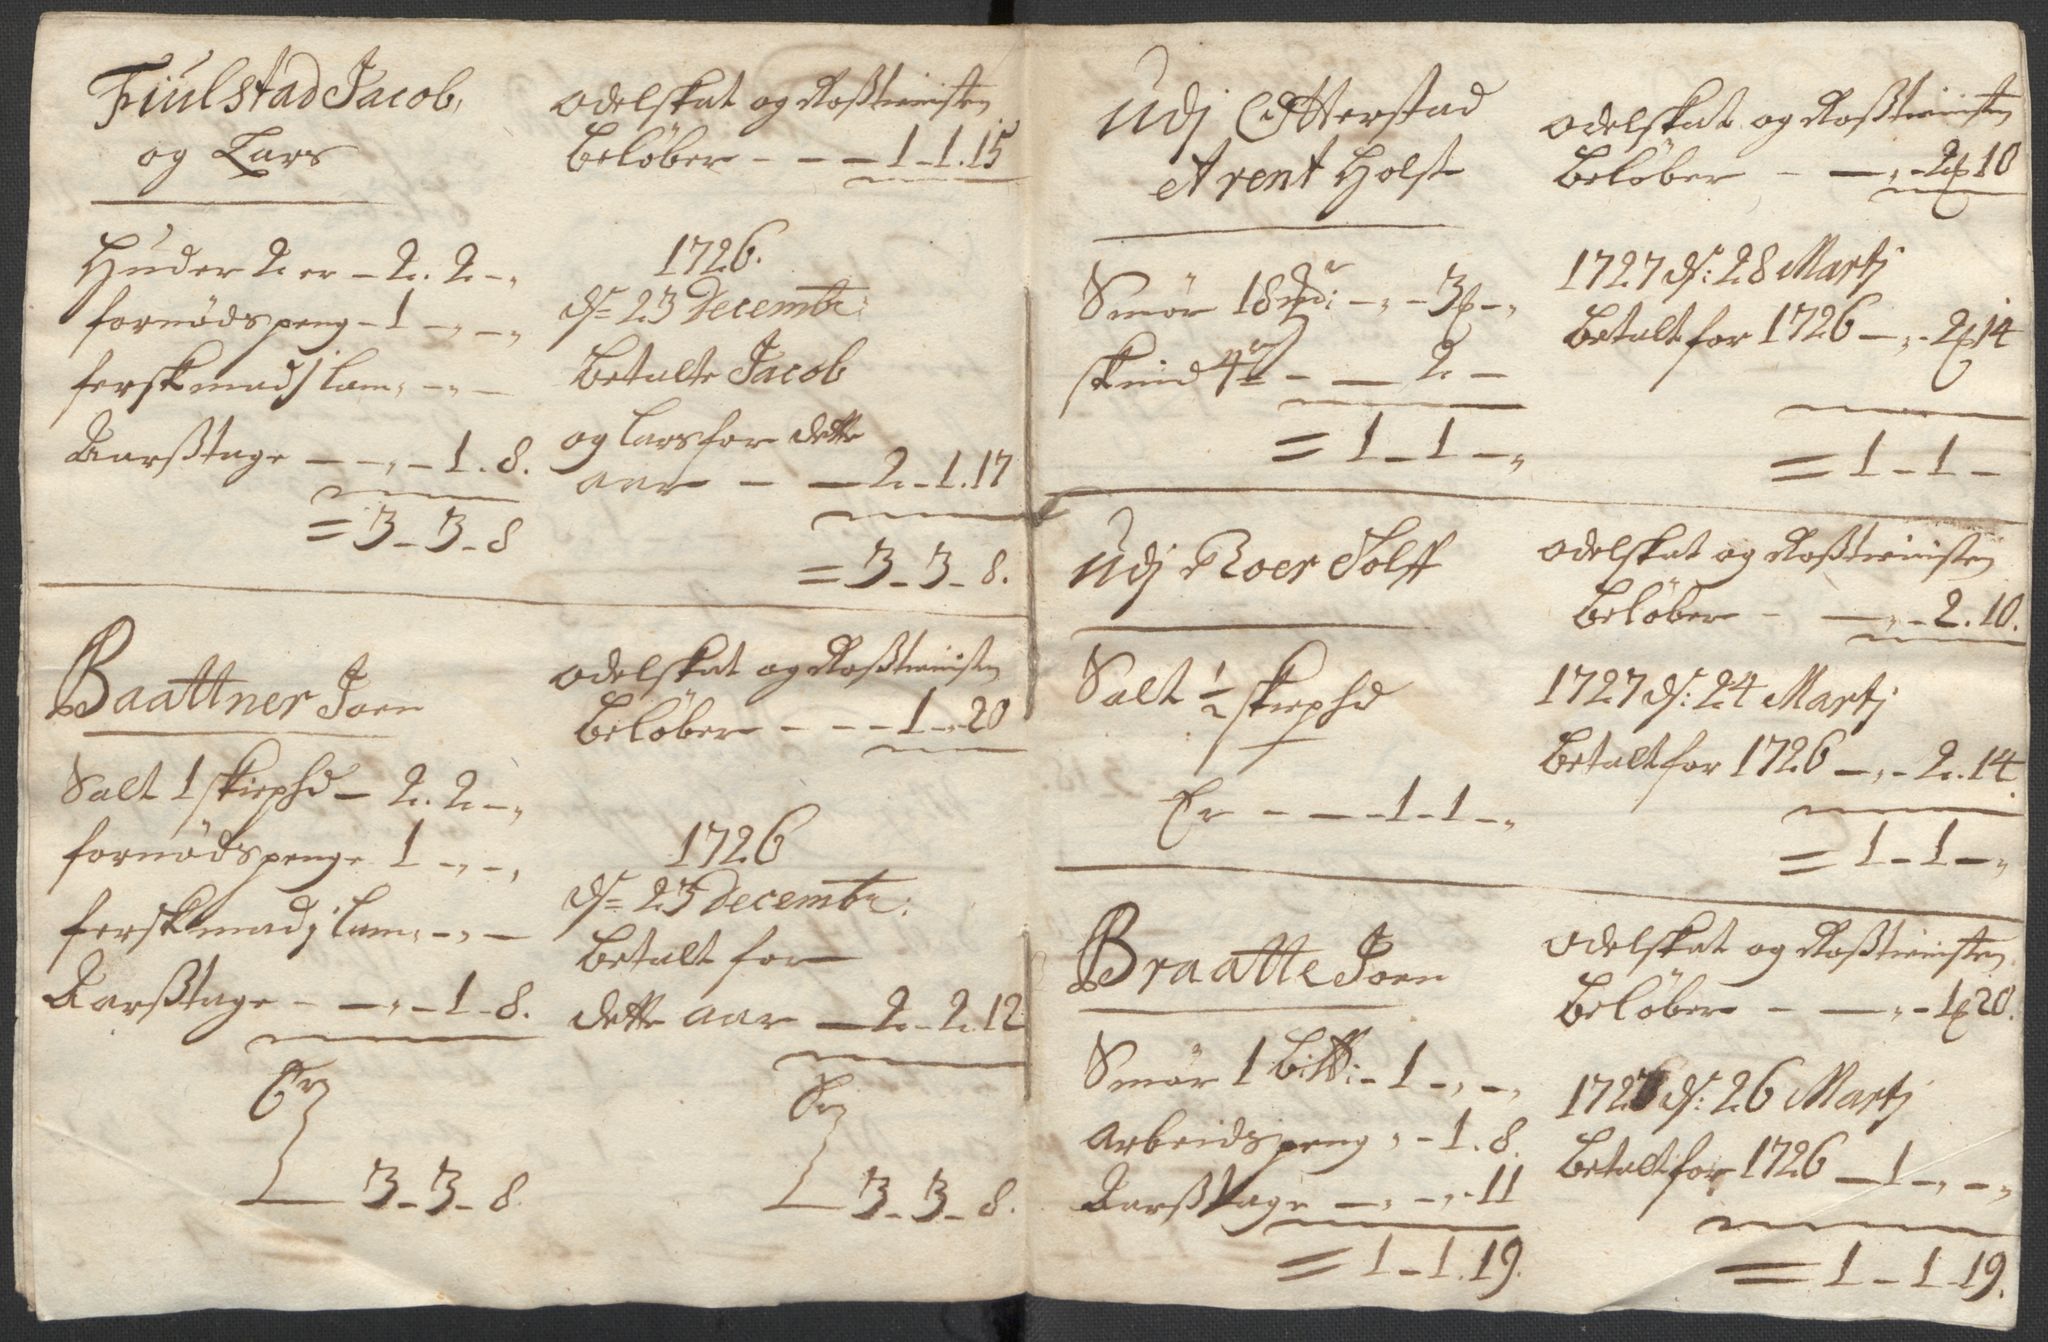 Fiulstad Jacob,
og Lars
Huder 2 er - 2. 2 - „
fornødspeng - 1 - „ - „
fersk mad j lam, - „ -
Aarßtage - - „ - 1. 8.
= 3 - 3 - 8
odelskat og Roßtienisten
beløber - - - 1 - 1. 15
1726.
ds= 23 Decembr:
betalte Jacob
og lars for dette
aar - - 2 - 1. 17
= 3 - 3 - 8.
Baattner Joen
Salt 1 skiephd - 2. 2 - „
fornødspenge 1 - „ - „
fersk mad j lam, - „ -
Aarßtage - - „ - 1 - 8.
Er
3 - 3 - 8.
odelskat og Roßtienisten
beløber - - - 1 - „ 20
1726
ds= 23 Decembr:
betalt for
dette aar - 2 - 2. 12
Er
3 - 3 - 8.
Udj Otterstad
Arent Holst
Smør 18 md: - „ - 3 - „
skind 4 - - 2 -
= 1 - 1 - „
odelskat og Roßtienisten
beløber - - „ - 2 10
1727 ds: 28 Martj
betalt for 1726 - „ - 2 14
= 1 - 1 -
Udj Roer Tolff
Salt 1/2 skiephd
Er - - 1 - 1 - „
odelskat og Roßtienisten
beløber - - „ - 2. 10.
1727 ds: 24 Martj
betalt for 1726 - „ - 2. 14.
= 1 - 1 - „
Braatte Joen
Smør 1 - 1 - „ - „
Arbeidspeng „ - 1. 8.
Aarßtage - „ - „ - 11
= 1 - 1. 19.
odelskat og Roßtienisten
beløber - - „ - 1 20.
1727 ds: 26 Martj
betalt for 1726 - 1 - „ - „
= 1 - 1 - 19.